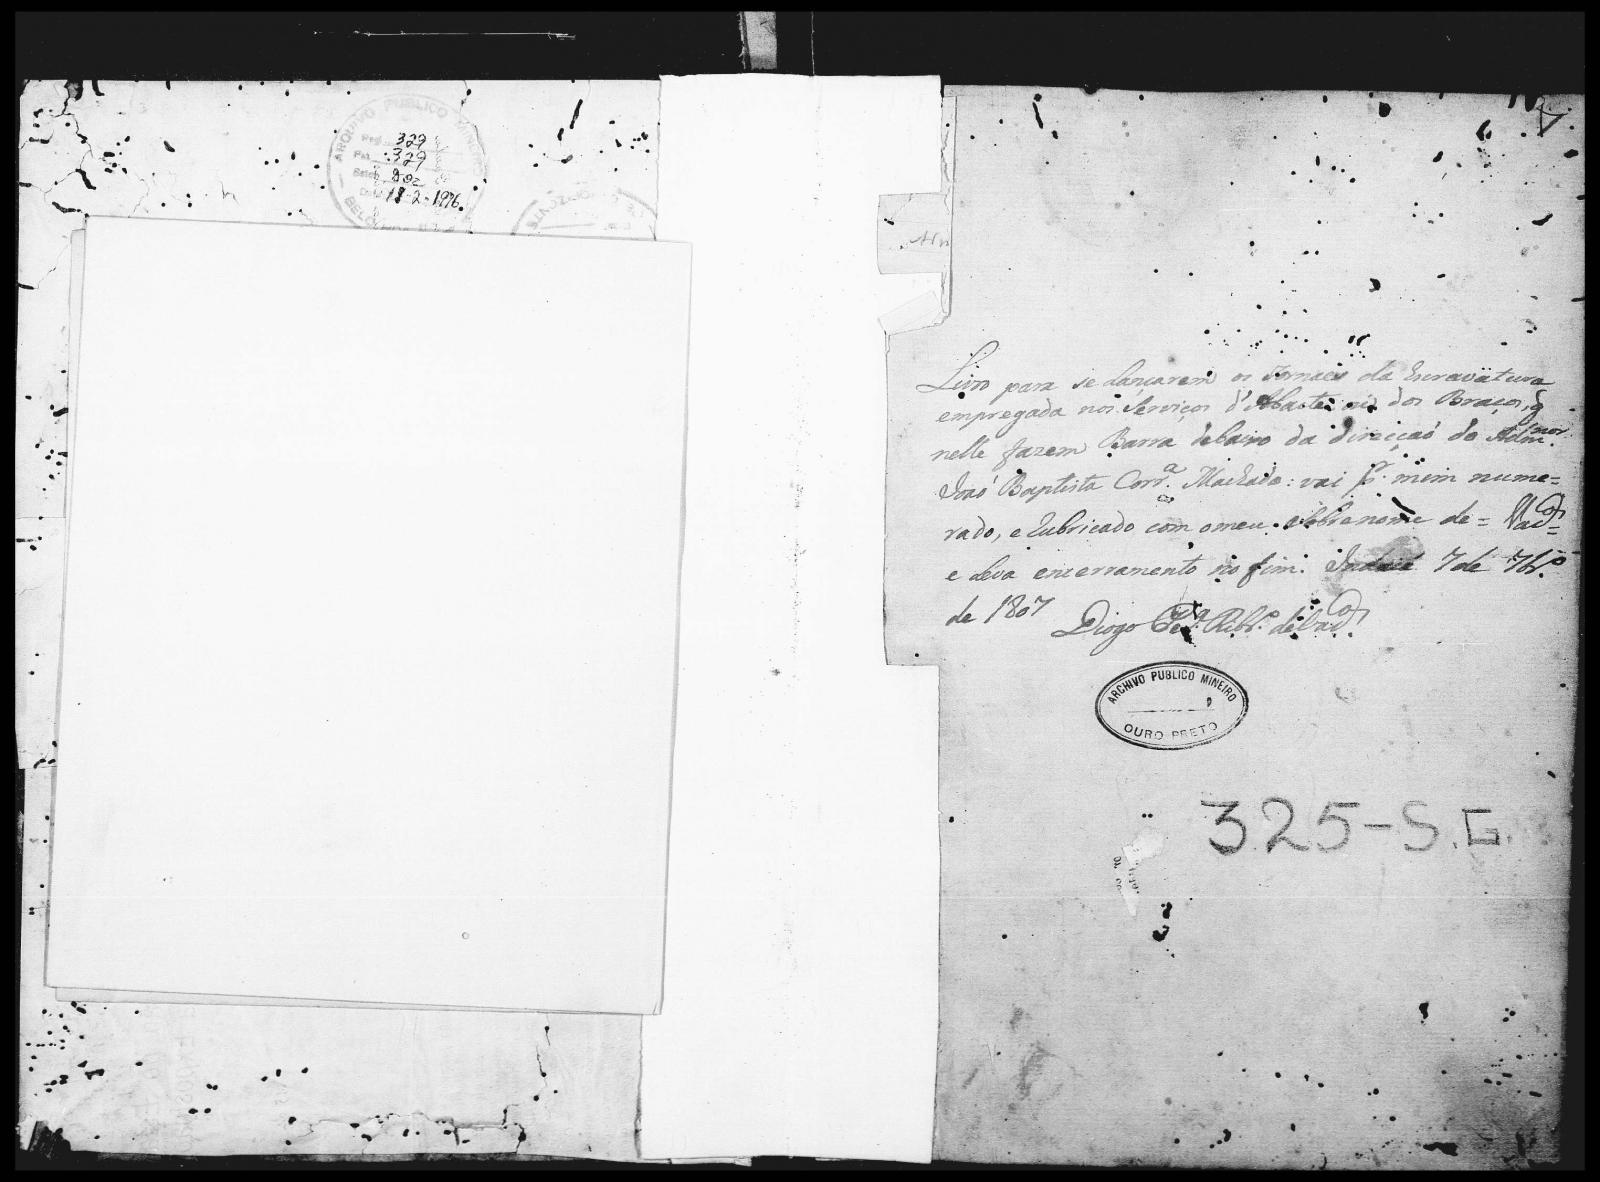 ARQUIVO PUBLICO MINEIRO
329
329
Doc
18-2-1976.
Livro para se Lançarem os Jornaes da Escravatura
empregada nos Serviços d'Abaeté dos Braços, q
nelle fazem Barra debaixo da direcçaõ do Adm.nor
Joaõ Baptista Corr.a Machado: vai p.r mim nume=
rado, e rubricado com o meu sobrenome de = Vas.cos =
e leva encerramento no fim. Indaiá 7 de 7br.o
de 1807
Diogo Per.a Rib.o de Vas.cos
ARCHIVO PUBLICO MINEIRO
OURO PRETO
325-S.G.